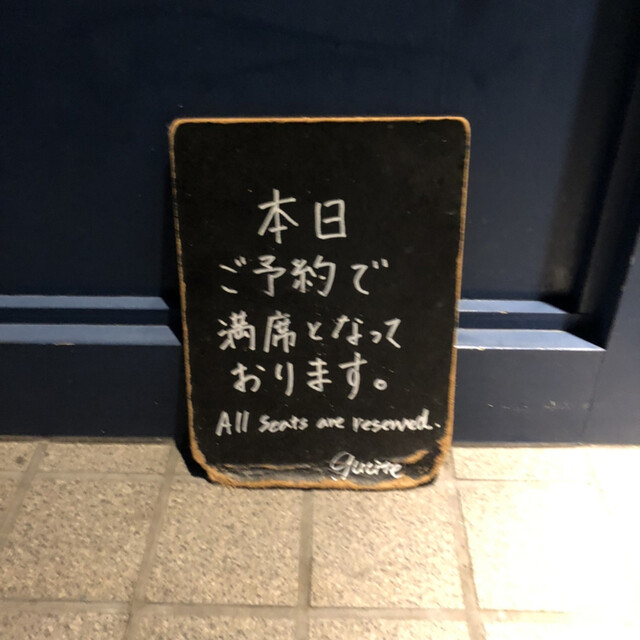 本日
ご予約で
満席となって
おります。
All seats are reserved.